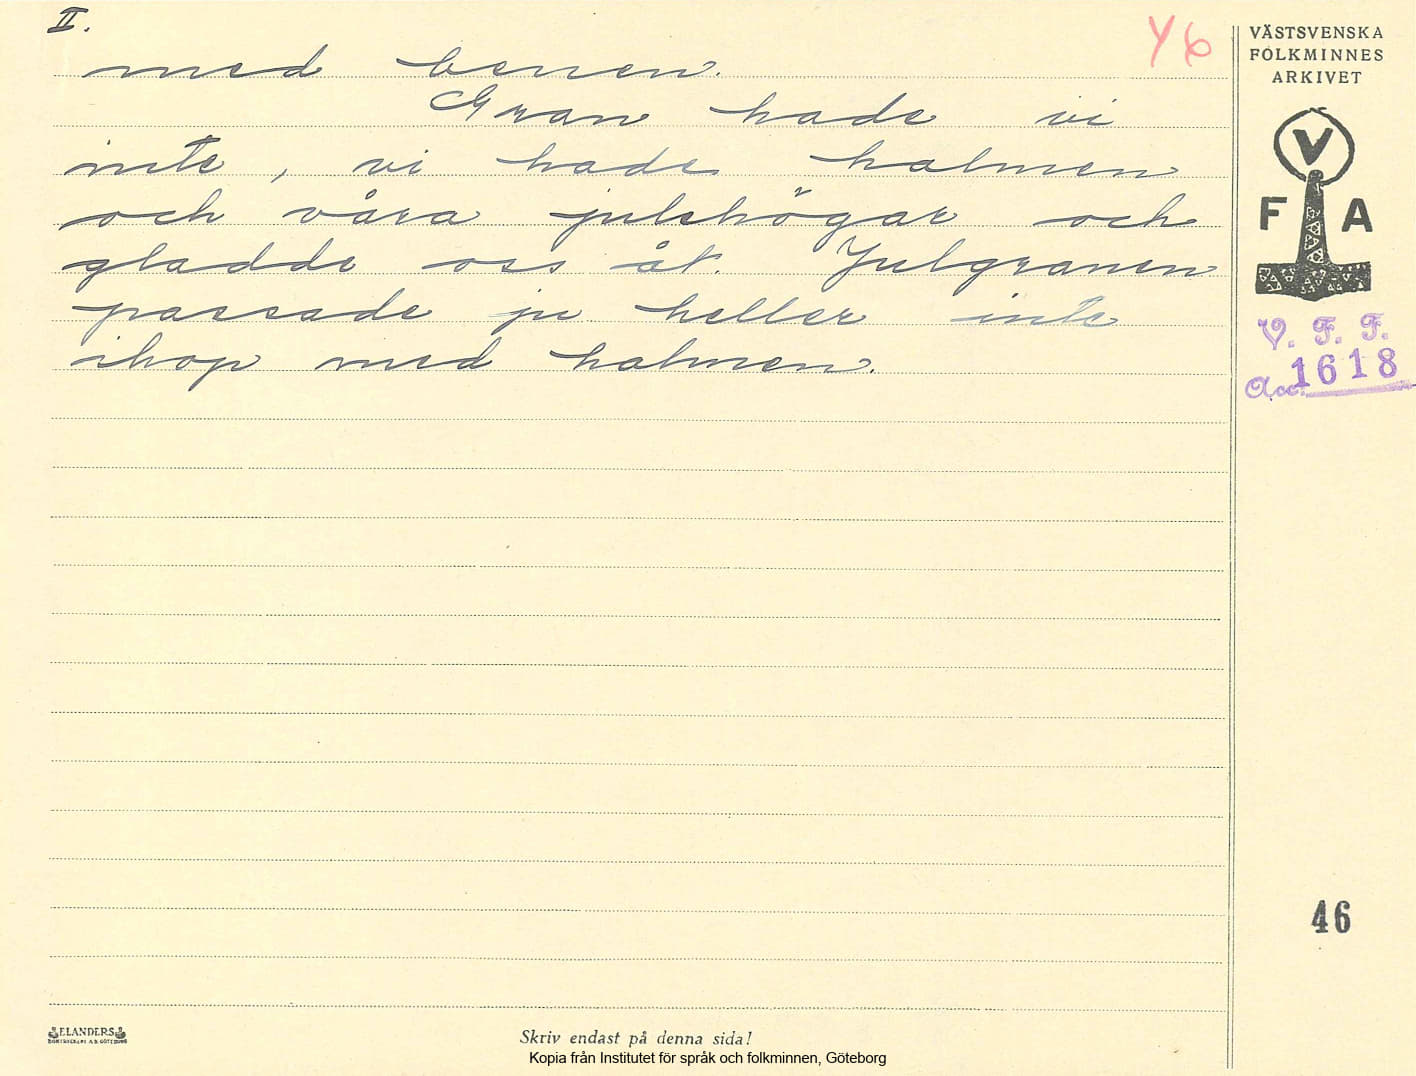 II.
Y 6
med benen.
Gran hade vi
inte, vi hade halmen
och våra julehögar och
gladde oss åt. Julgranen
passade ju heller inte
ihop med halmen.
VÄSTSVENSKA
FOLKMINNES
ARKIVET
V
F A
V. F. F.
Acc. 1618
46
ELANDERS
BOKTRYCKERI A.B. GÖTEBORG
Skriv endast på denna sida!
Kopia från Institutet för språk och folkminnen, Göteborg